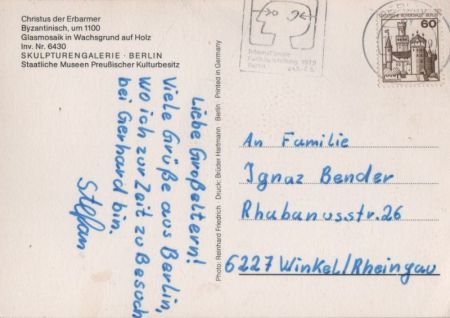 Christus der Erbarmer
Byzantinisch, um 1100
Glasmosaik in Wachsgrund auf Holz
Inv. Nr. 6430
SKULPTURENGALERIE · BERLIN
Staatliche Museen Preußischer Kulturbesitz
Liebe Großeltern!
Viele Grüße aus Berlin,
wo ich zur Zeit zu Besuch
bei Gerhard bin.
Stefan
Photo: Reinhard Friedrich Druck: Brüder Hartmann Berlin Printed in Germany
Internationale
Funkausstellung 1979
Berlin
BERLIN
60
An Familie
Ignaz Bender
Rhabanusstr. 26
6227 Winkel/Rheingau